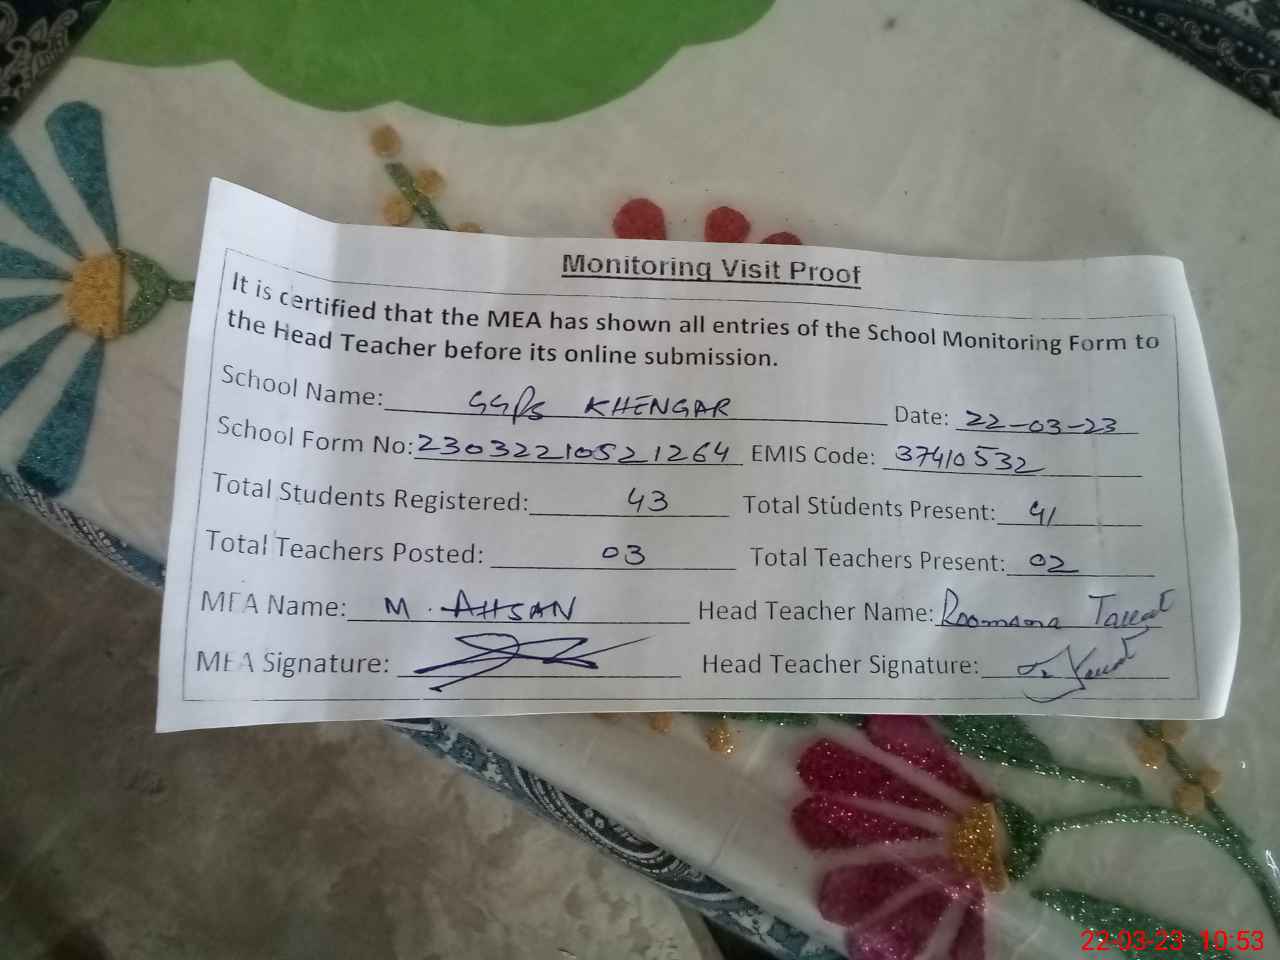 Monitoring Visit Proof
It is certified that the MEA has shown all entries of the School Monitoring Form to
the Head Teacher before its online submission.
School Name: GGPS KHENGAR Date: 22-03-23
School Form No: 23032210521264 EMIS Code: 37410532
Total Students Registered: 43 Total Students Present: 41
Total Teachers Posted: 03 Total Teachers Present: 02
MEA Name: M. AHSAN Head Teacher Name: Roomana
MEA Signature: Head Teacher Signature:
22-03-23 10:53